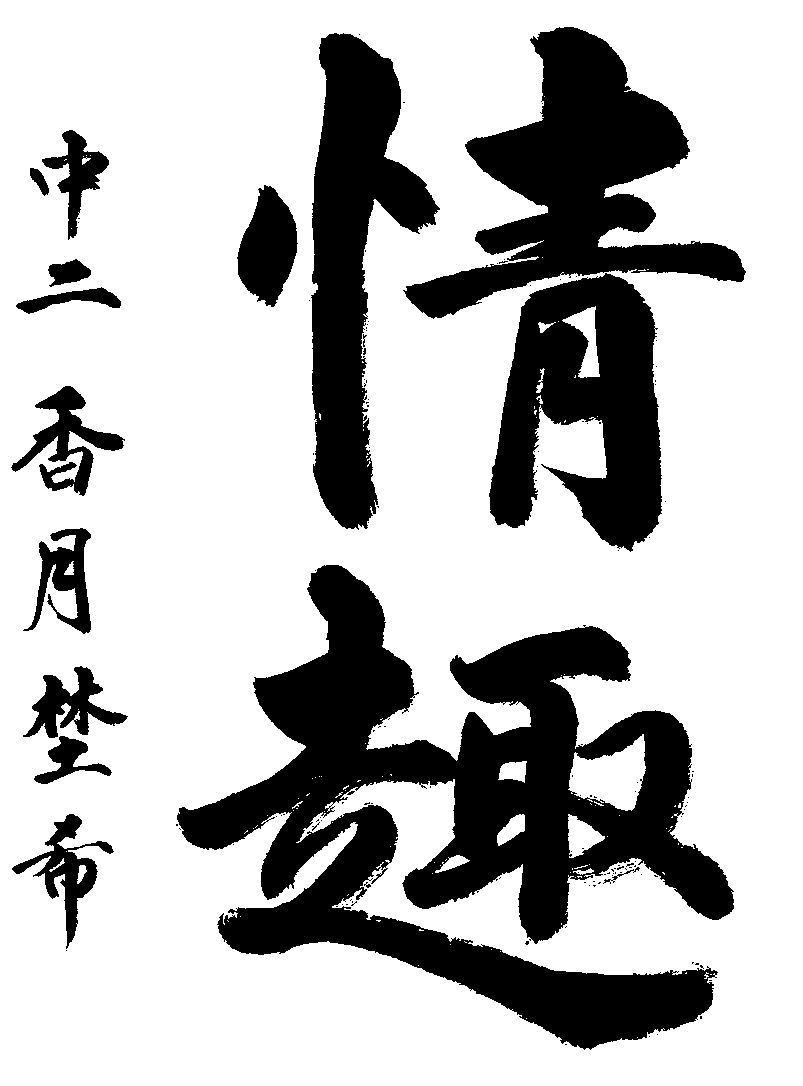 情趣
中二 香月埜希